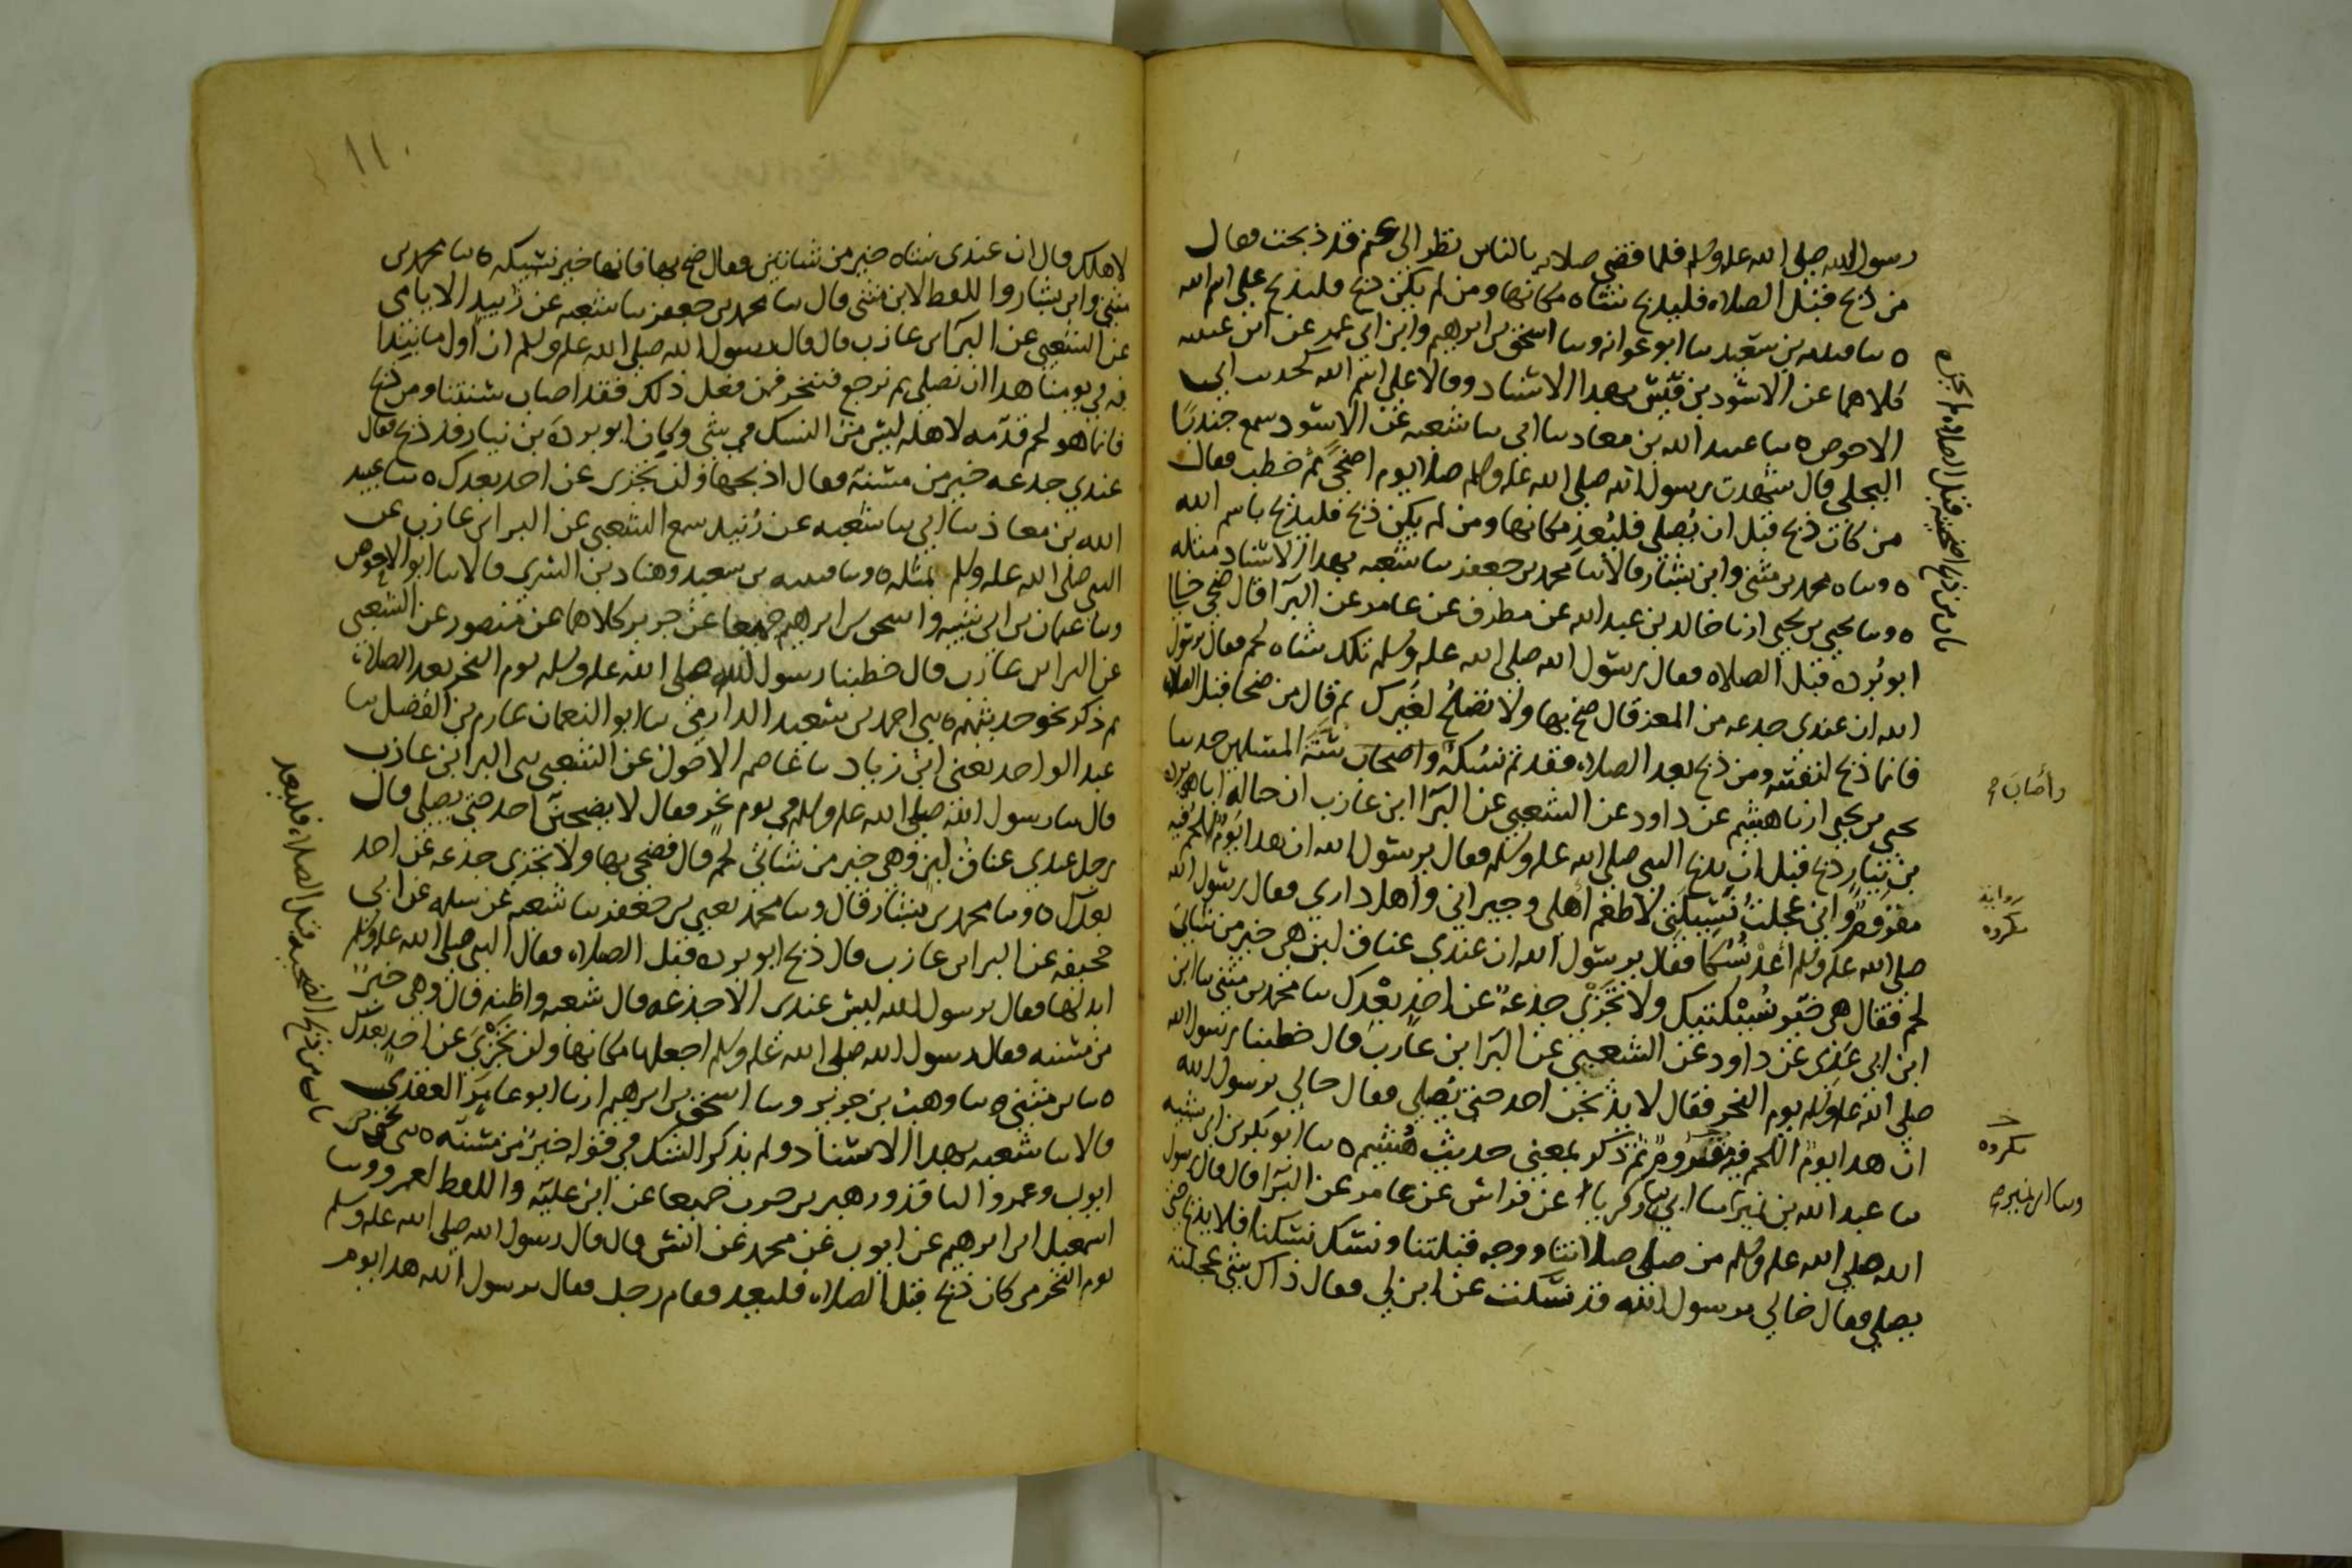 رسول الله صلى الله عليه وسلم فلما قضى صلاته بالناس نظر الى غنم قد ذبحت فقال
من ذبح قبل الصلاه فليذبح شاه مكانها ومن لم يكن ذبح فليذبح على اسم الله
ه سا قتيبه بن سعيد سا ابو عوانه وسا اسحق بن ابرهيم وابن ابي عمر عن ابن عيينه
كلاهما عن الاسود بن قيس بهذا الاسناد وقالا على اسم الله كحديث ابي
الاحوص ه سا عبيد الله بن معاد سا ابي سا شعبه عن الاسود سمع جندبًا
البجلي قال شهدت رسول الله صلى الله عليه وسلم صلا يوم اضحًى ثم خطب فقال
من كان ذبح قبل ان يُصلي فليُعد مكانها ومن لم يكن ذبح فليذبح باسم الله
ه وساه محمد بن مثنى وابن بشار قالا سا محمد بن جعفر سا شعبه بهذا الاسناد مثله
ه وسا يحيى بن يحيى ارنا خالد بن عبد الله عن مطرف عن عامر عن البرآ قال ضحى خالي
ابو بُرده قبل الصلاه فقال رسول الله صلى الله عليه وسلم تلك شاه لحم فقال يرسول
الله ان عندي جدعه من المعز قال ضح بها ولا تصلح لغيرك ثم قال من ضحا قبل الصلاه
فانما ذبح لنفسه ومن ذبح بعد الصلاه فقد تم نسكه واصحاب سنة المسلمين حدسا
يحيى بن يحيى ارنا هشيم عن داود عن الشعبي عن البرآ ابن عازب ان خاله ابا بردة
بن نيار ذبح قبل ان يذبح النبي صلى الله عليه وسلم فقال يرسول الله ان هدا يوم اللحم فيه
مقروم واني عجلت نسيكتي لاطعم اهلي وجيراني واهل داري فقال رسول الله
صلى الله عليه وسلم أعد نسكا فقال يرسول الله ان عندي عناق لبن هي خير من شاتى
لحم فقال هي خير نسيكتيك ولا تجزي جذعة عن احد بعدك سا محمد بن مثنى سا ابن
ابن ابي عدى عن داود عن الشعبي عن البرآ ابن عازب قال خطبنا رسول الله
صلى الله عليه وسلم يوم النحر فقال لا يذبحن احد حتى يُصلي فقال خالي يرسول الله
ان هدا يوم اللحم فيه مقروم ثم ذكر بمعنى حديث هُشيم ه سا ابو بكر بن ابي شيبه
سا عبد الله بن نمير سا ابي سا زكريا عن فراس عن عامر عن البرآ قال قال رسول
الله صلى الله عليه وسلم من صلى صلاتنا ووجه قبلتنا ونسك نسكنا فلا يذبح حتى
يصلي فقال خالي يرسول الله قد نسكت عن ابن لي فقال ذاك شي عجلته
باب من ذبح اضحيته قبل الصلاه لم تجزه
وأصَابَ
رواية
مكروه
مكروه
وسا ابن نمير
١١٠
لاهلك قال ان عندي شاه خير من شاتين فقال ضح بها فانها خير نسيكه ه سا محمد بن
مثنى وابن بشار واللفظ لابن مثنى قال سا محمد بن جعفر سا شعبه عن زبيد الايامى
عن الشعبي عن البرآ بن عازب قال قال رسول الله صلى الله عليه وسلم ان اول ما نبتدا
به في يومنا هدا ان نصلي ثم نرجع فننحر فمن فعل ذلك فقد اصاب سنتنا ومن ذبح
فانما هو لحم قدمه لاهله ليس من النسك في شي وكان ابو بردة بن نيار قد ذبح فقال
عندي جدعه خير من مسنة فقال اذبحها ولن تجزى عن احد بعدك ه سا عبيد
الله بن معاذ سا ابي سا شعبه عن زُبيد سمع الشعبي عن البرا ابن عازب عن
النبي صلى الله عليه وسلم بمثله ه وسا قتيبه بن سعيد وهناد بن السري قالا سا ابو الاحوص
وسا عثمان بن ابي شيبه واسحق بن ابرهيم جميعا عن جرير كلاهما عن منصور عن الشعبي
عن البرا بن عازب قال خطبنا رسول الله صلى الله عليه وسلم يوم النحر بعد الصلاه
ثم ذكر نحو حديثهم ه سي احمد بن سعيد الدارمي سا ابو النعمان عارم بن الفضل سا
عبد الواحد يعني ابن زياد سا عاصم الاحول عن الشعبي سي البرا ابن عازب
قال سا رسول الله صلى الله عليه وسلم في يوم نحر فقال لا يضحين احد حتى يصلي قال
رجل عندي عناق لبن وهي خير من شاتى لحم قال فضحي بها ولا تجزى جذعه عن احد
بعدك ه وسا محمد بن بشار قال وسا محمد يعني بن جعفر سا شعبه عن سلمه عن ابي
جحيفه عن البرا بن عازب قال ذبح ابو برده قبل الصلاه فقال النبي صلى الله عليه وسلم
ابدلها فقال يرسول الله ليس عندى الا جذعه قال شعبه واظنه قال وهي خيرٌ
من مسنه فقال رسول الله صلى الله عليه وسلم اجعلها مكانها ولن تَجْزِيَ عن احد بعدك
ه سا بن مثنى ه سا وهب بن جرير وسا اسحق بن ابرهيم ارنا ابو عامر العقدي
قالا سا شعبه بهدا الاسناد ولم يذكر الشك في قوله خير من مسنه ه سي يحيى بن
ايوب وعمرو الناقد وزهير بن حرب جميعا عن ابن عليه واللفظ لعمرو وسا
اسمعيل ابن ابرهيم عن ايوب عن محمد عن انس قال قال رسول الله صلى الله عليه وسلم
يوم النحر من كان ذبح قبل الصلاه فليعد فقام رجل فقال يرسول الله هدا يوم
باب من ذبح الضحيه قبل الصلاه فليعد